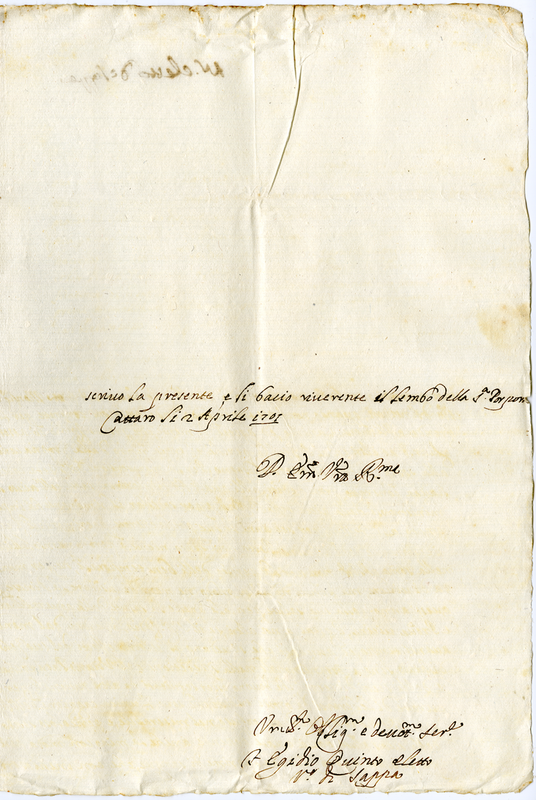 scrivo la presente, e li bacio riverente il lembo della S.ª Porpora
Cattaro li 2 Aprile 1701
D. Em.ª Vrã R.me
Vm̃ Obligm̃ e deuotm̃ Ser.e
F. Egidio Quinto eletto
V.º di Sappa